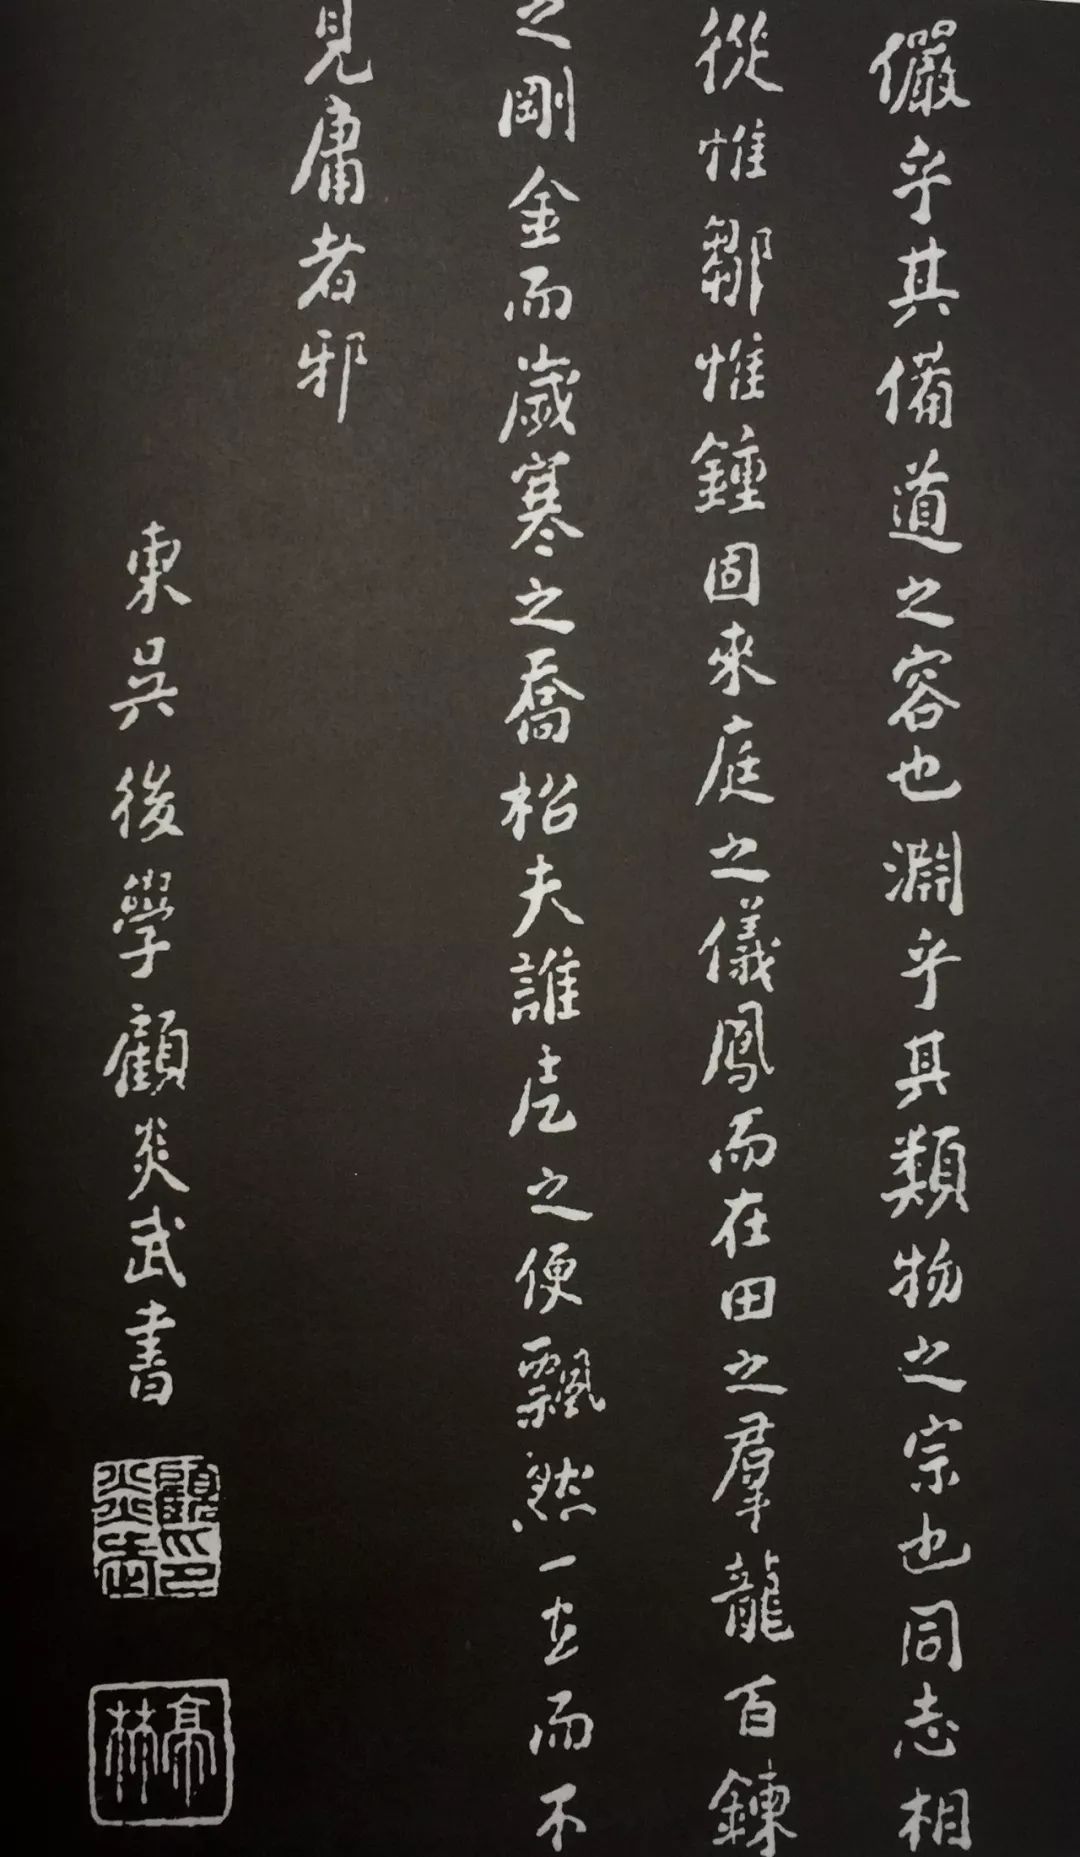 儼乎其備道之容也淵乎其類物之宗也同志相
從惟鄒惟鍾固來庭之儀鳳而在田之羣龍百鍊
之剛金而歲寒之喬松夫誰虗之便飄然一並而不
見庸者邪
東吳後學顧炎武書
顧炎武印
亭林